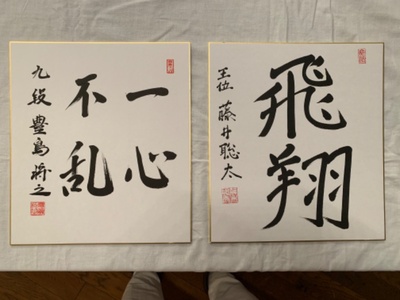 一心
不乱
九段 豊島将之
飛翔
王位 藤井聡太